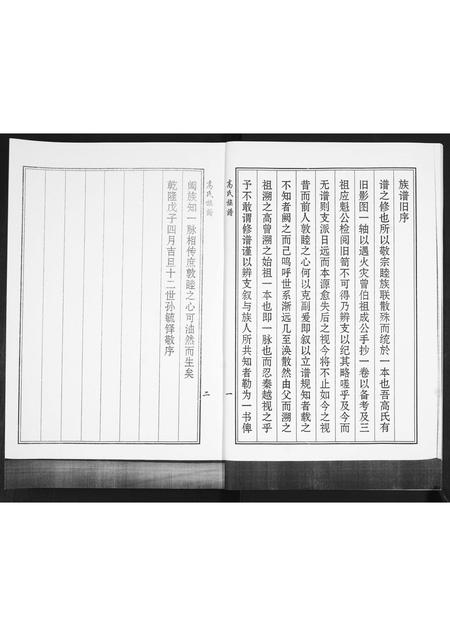 族谱旧序
谱之修也所以敬宗睦族联散殊而统於一本也吾高氏有
旧影图一轴以遇火灾曾伯祖成公手抄一卷以备考及三
祖应魁公检阅旧笥不可得乃辨支以纪其略嗟乎及今而
无谱则支派日远而本源愈失后之视今将不止如今之视
昔而前人敦睦之心何以克副爰即叙以立谱规知者载之
不知者阙之而己呜呼世系渐远几至涣散然由父而溯之
祖溯之高曾溯之始祖一本也即一脉也而忍秦越视之乎
予不敢谓修谱谨以辨支叙与族人所共知者勒为一书俾
高氏族谱
一
高氏族谱
二
阖族知一脉相传庶敦睦之心可油然而生矣
乾隆戊子四月吉旦十二世孙毓铎敬序